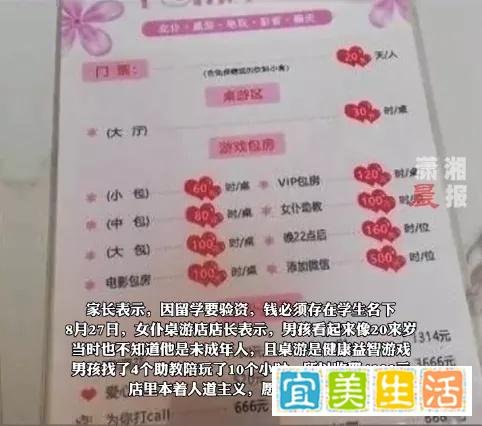 女仆·桌游·电玩·影音·聊天
门票:
20 天/人
桌游区
(大 厅)
30 时/桌
游戏包房
(小 包) 60 时/桌
VIP包房 120 时/桌
(中 包) 80 时/桌
女仆助教 100 时/位
(大 包) 100 时/桌
晚22点后 160 时/位
电影包房 100 时/桌
添加微信 500 时/位
潇湘
晨报
家长表示，因留学要验资，钱必须存在学生名下
8月27日，女仆桌游店店长表示，男孩看起来像20来岁
当时也不知道他是未成年人，且桌游是健康益智游戏
男孩找了4个助教陪玩了10个小时
店里本着人道主义，愿
314元
3666元
爱心
为你打call
666元
宜美生活